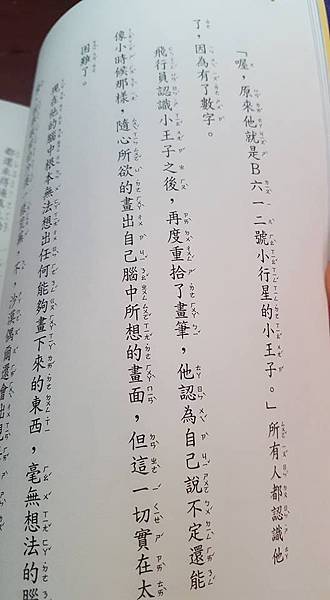 「喔，原來他就是B六一二號小行星的小王子。」所有人都認識他
了，因為有了數字。
飛行員認識小王子之後，再度重拾了畫筆，他認為自己說不定還能
像小時候那樣，隨心所欲的畫出自己腦中所想的畫面，但這一切實在太
困難了。
現在他的腦中根本無法想出任何能夠畫下來的東西，毫無想法的腦
不，沙漠偶爾還會出現
都還來得